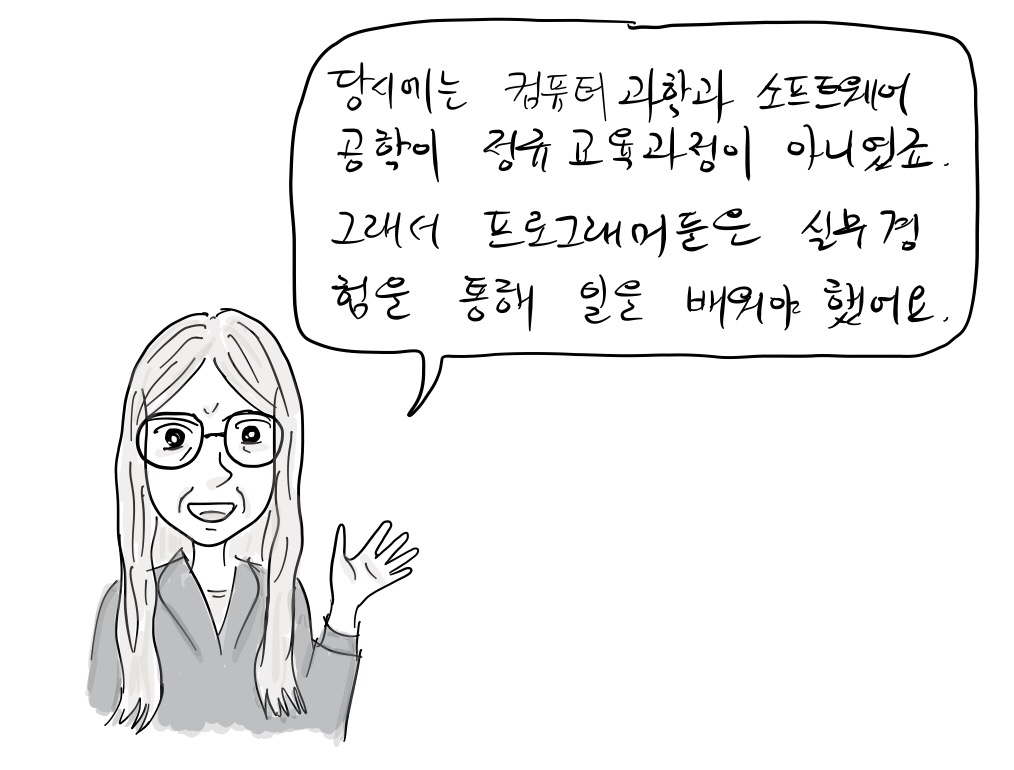 당시에는 컴퓨터 과학과 소프트웨어
공학이 정규 교육과정이 아니였죠.
그래서 프로그래머들은 실무 경
험을 통해 일을 배워야 했어요.